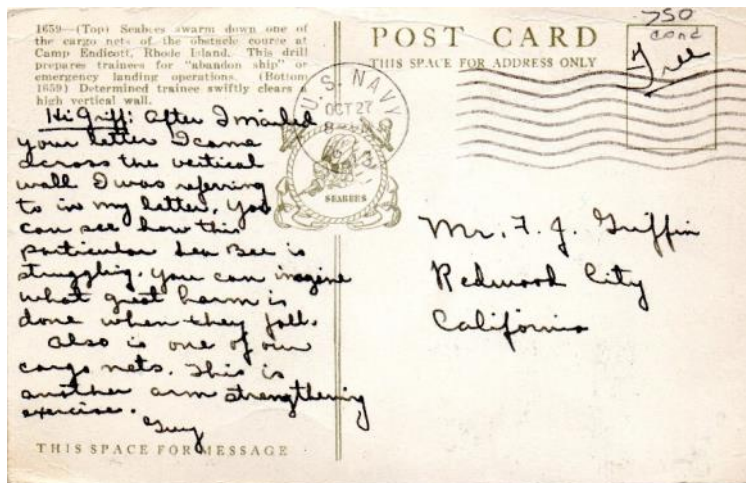 1659—(Top) Seabees swarm down one of
the cargo nets of the obstacle course at
Camp Endicott, Rhode Island. This drill
prepares trainees for "abandon ship" or
emergency landing operations. (Bottom
1659) Determined trainee swiftly clears a
high vertical wall.
Hi Griff: After I mailed
your letter I came
across the vertical
wall I was referring
to in my letter. You
can see how this
particular Sea Bee is
struggling. You can imagine
what great harm is
done when they fall.
Also is one of our
cargo nets. This is
another arm strengthening
exercise.
Guy
THIS SPACE FOR MESSAGE
POST CARD
THIS SPACE FOR ADDRESS ONLY
750
cond
Free
U.S. NAVY
OCT 27
SEABEES
Mr. F. J. Griffin
Redwood City
California